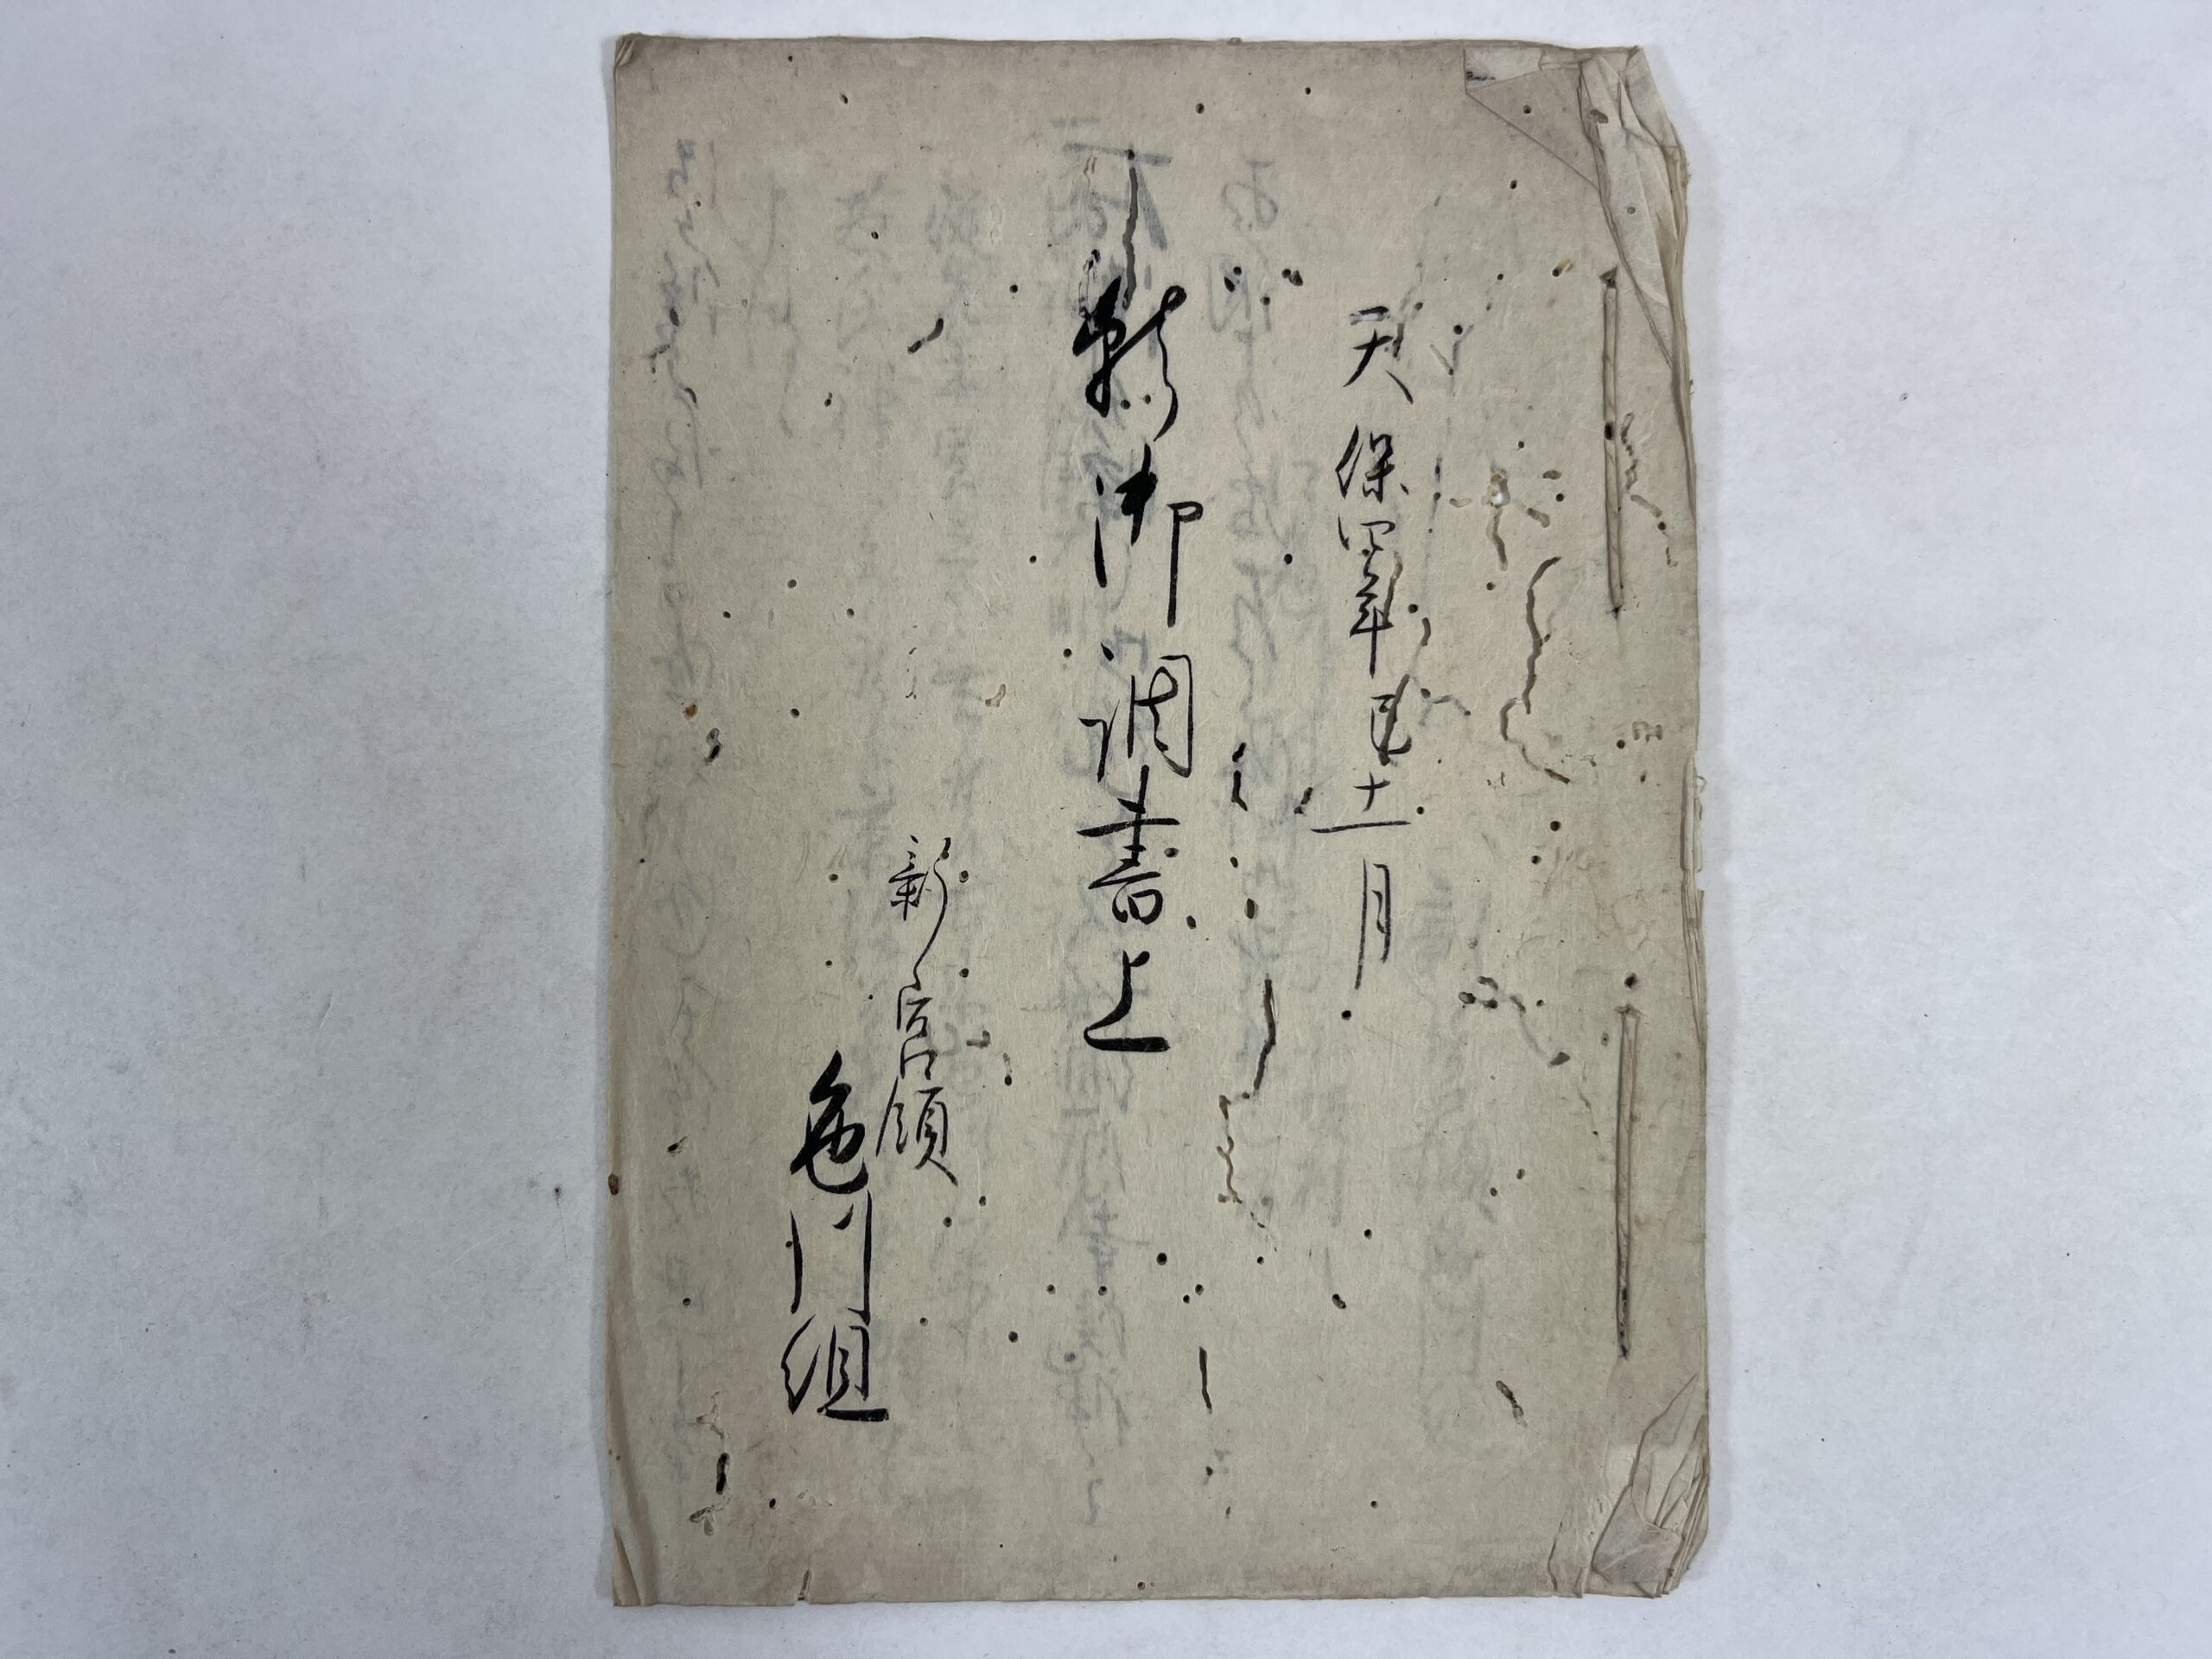 天保四年巳十一月
御調書上
新宮領
色川組